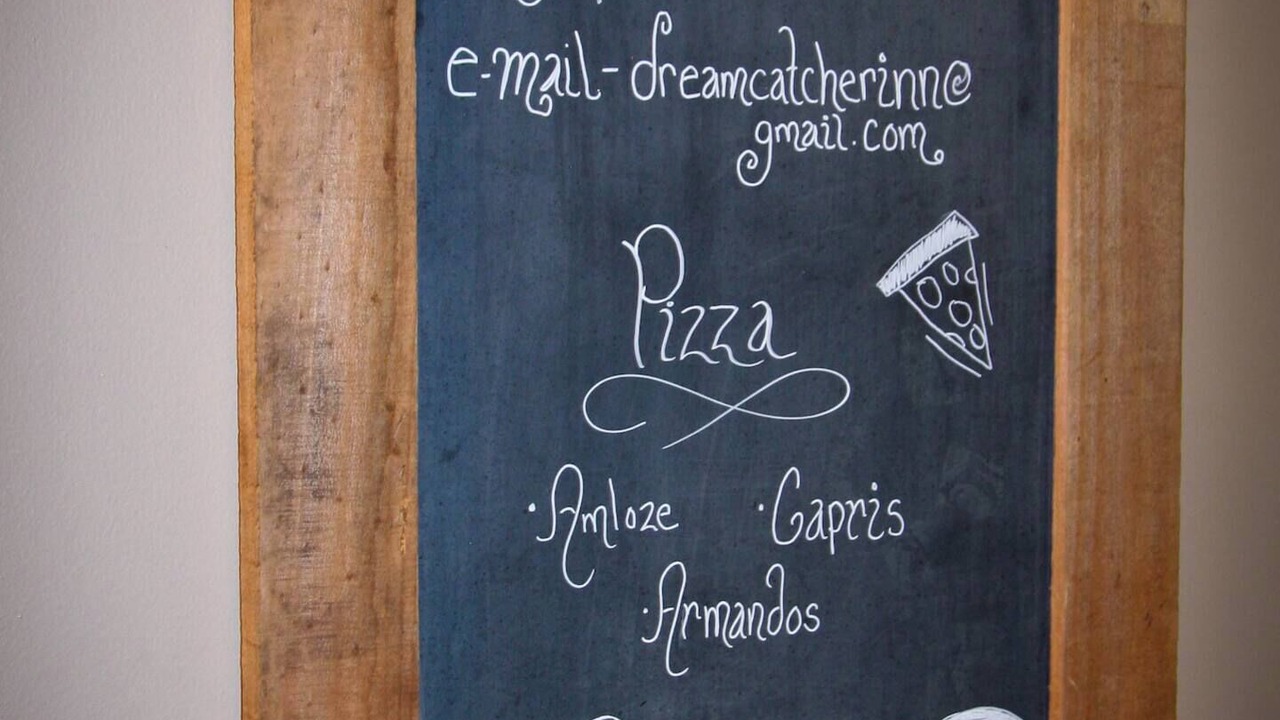 e-mail-dreamcatcherinn@
gmail.com
Pizza
·Amloze ·Capris
·Armandos